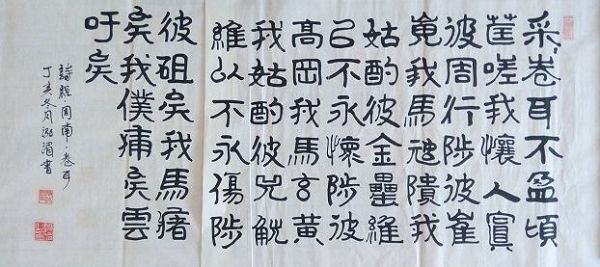 采〻卷耳不盈頃
筐嗟我懷人寘
彼周行陟彼崔
嵬我馬虺隤我
姑酌彼金罍維
㠯不永懷陟彼
高岡我馬玄黃
我姑酌彼兕觥
維以不永傷陟
彼砠矣我馬瘏
矣我僕痡矣雲
吁矣
詩經·周南·卷耳
丁亥冬月書